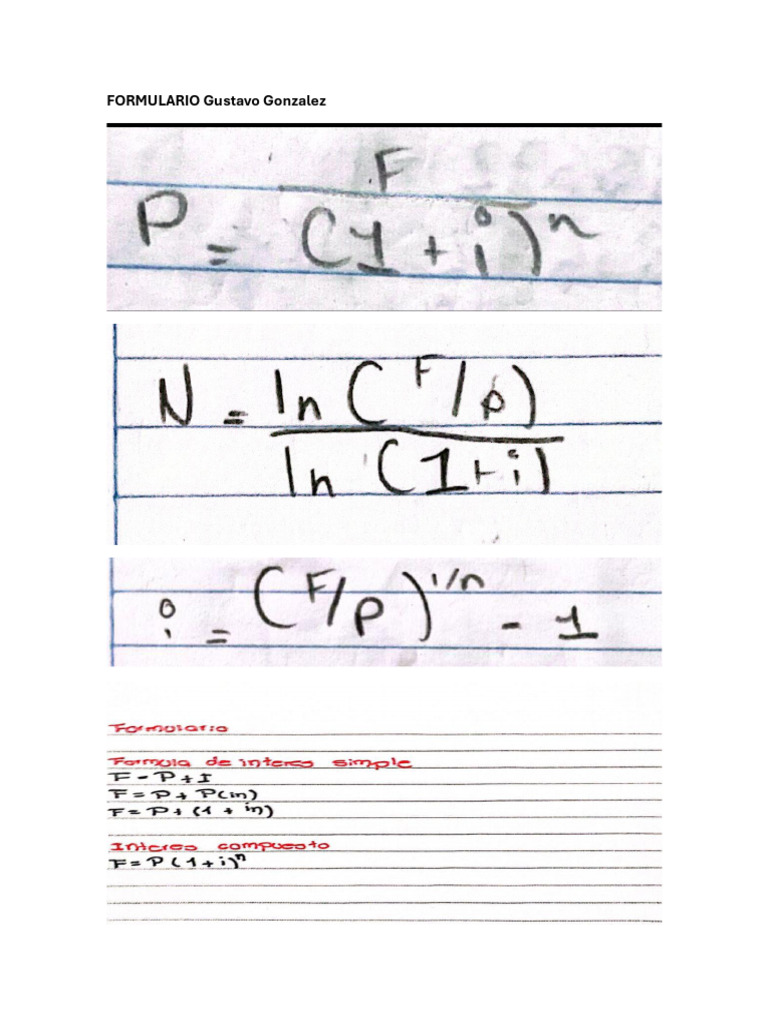 FORMULARIO Gustavo Gonzalez
P = F / (1 + i)^n
N = ln (F/p) / ln (1+i)
i = (F/p)^1/n - 1
Formulario
Formula de interes simple
F - P + I
F = P + P(in)
F = P + (1 + in)
Interes compuesto
F = P (1 + i)^n